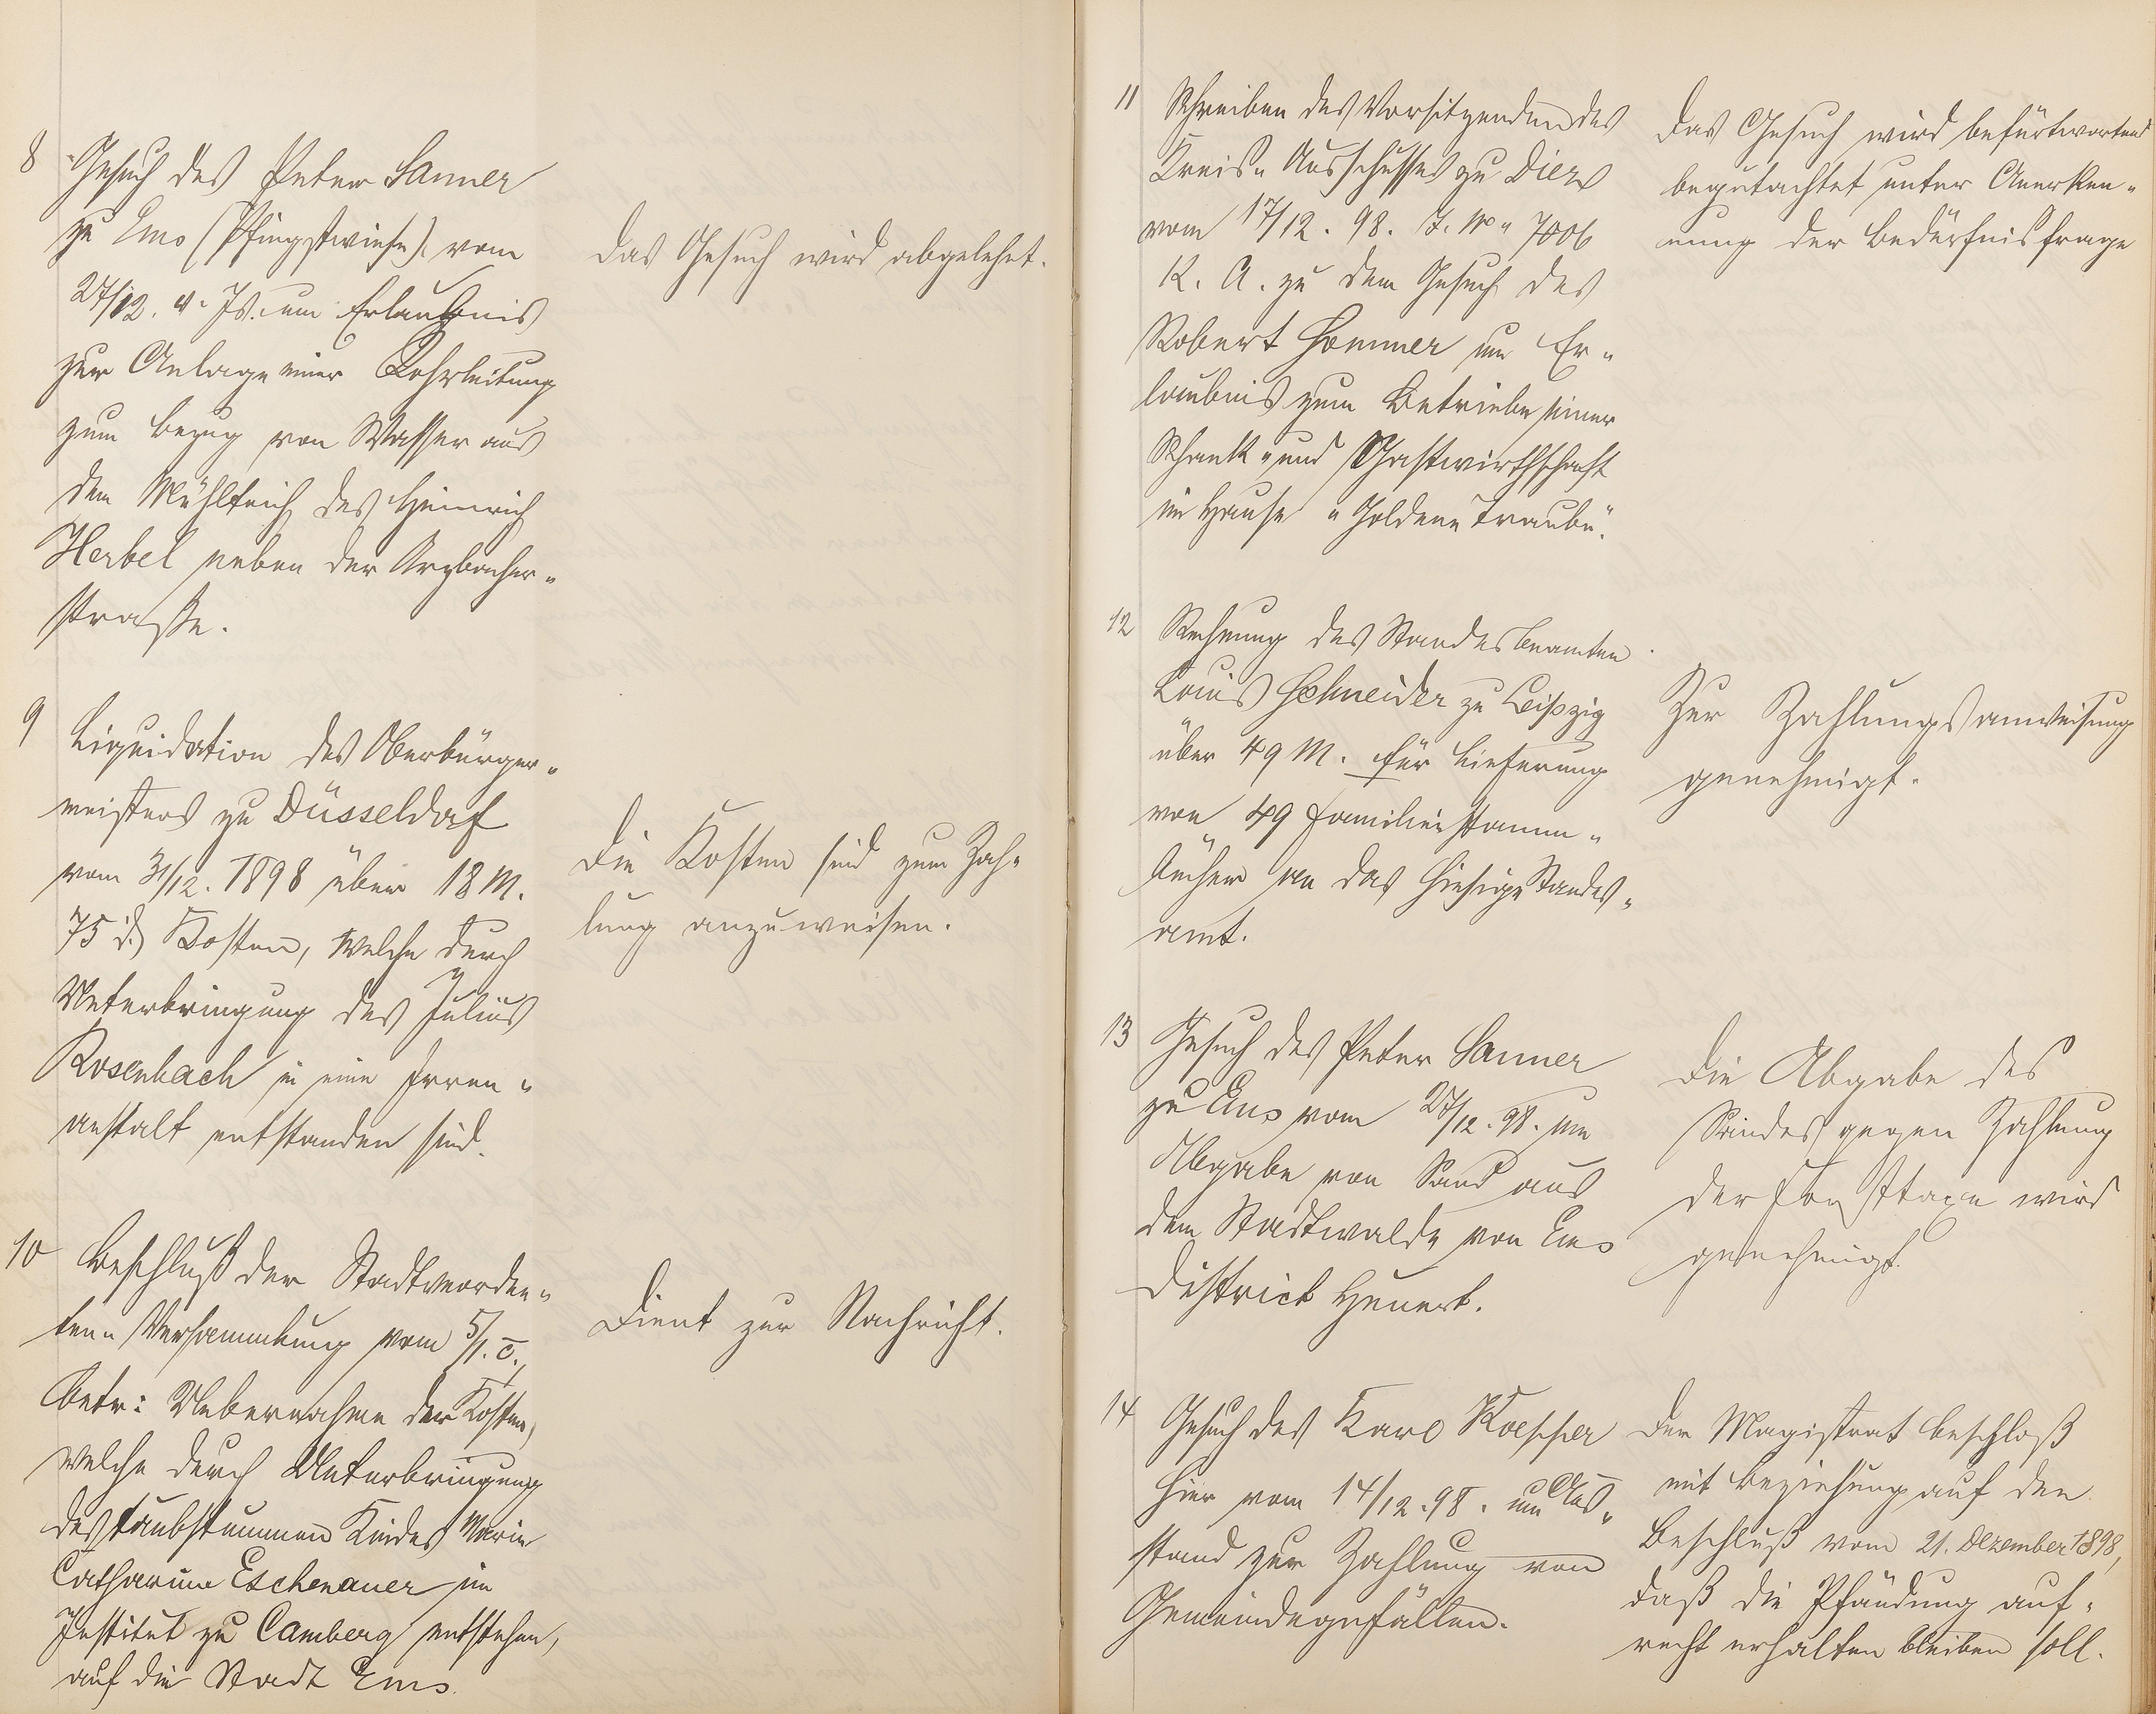 8 Gesuch des Peter Sanner
zu Ems (Pfingstwiese) vom
27/12. v. Js. um Erlaubnis
zur Anlage einer Rohrleitung
zum Bezug von Wasser aus
dem Mühlteich des Heinrich
Herbel neben der Arzbacher-
straße.
Das Gesuch wird abgelehnt.
9 Liquidation des Oberbürger-
meisters zu Düsseldorf
vom 31/12. 1898 über 18 M.
75 d. Kosten, welche durch
Unterbringung des Julius
Rosenbach in eine Irren-
anstalt entstanden sind.
Die Kosten sind zum Zah-
lung anzuweisen.
10 Beschluß der Stadtverordne-
ten-Versammlung vom 5/1. c.,
betr: Uebernahme der Kosten,
welche durch Unterbringung
des taubstummen Kindes Marie
Catharina Eschenauer im
Institut zu Camberg entstehen,
auf die Stadt Ems.
Dient zur Nachricht.
11 Schreiben des Vorsitzenden des
Kreis-Ausschusses zu Diez
vom 17/12. 98. J. No. 7006
K. A. zu dem Gesuch des
Robert Hommer um Er-
laubnis zum Betriebe seiner
Schank- und Gastwirthschaft
im Hause "Goldene Traube".
Das Gesuch wird befürwortend
begutachtet unter Anerken-
nung der Bedürfnisfrage
12 Rechnung des Standesbeamten
Louis Schneider zu Leipzig
über 49 M. für Lieferung
von 49 Familienstamm-
bücher an das hiesige Standes-
amt.
Zur Zahlungsanweisung
genehmigt.
13 Gesuch des Peter Sanner
zu Ems vom 27/12. 98. um
Abgabe von Sand aus
dem Stadtwalde von Ems
District Heuert.
Die Abgabe des
Sandes gegen Zahlung
der Forsttaxe wird
genehmigt.
14 Gesuch des Karl Koepper
hier vom 14/12. 98. um Aus-
stand zur Zahlung von
Gemeindegefällen.
Der Magistrat beschloß
mit Beziehung auf den
Beschluß vom 21. Dezember 1898,
daß die Pfändung auf-
recht erhalten bleiben soll.